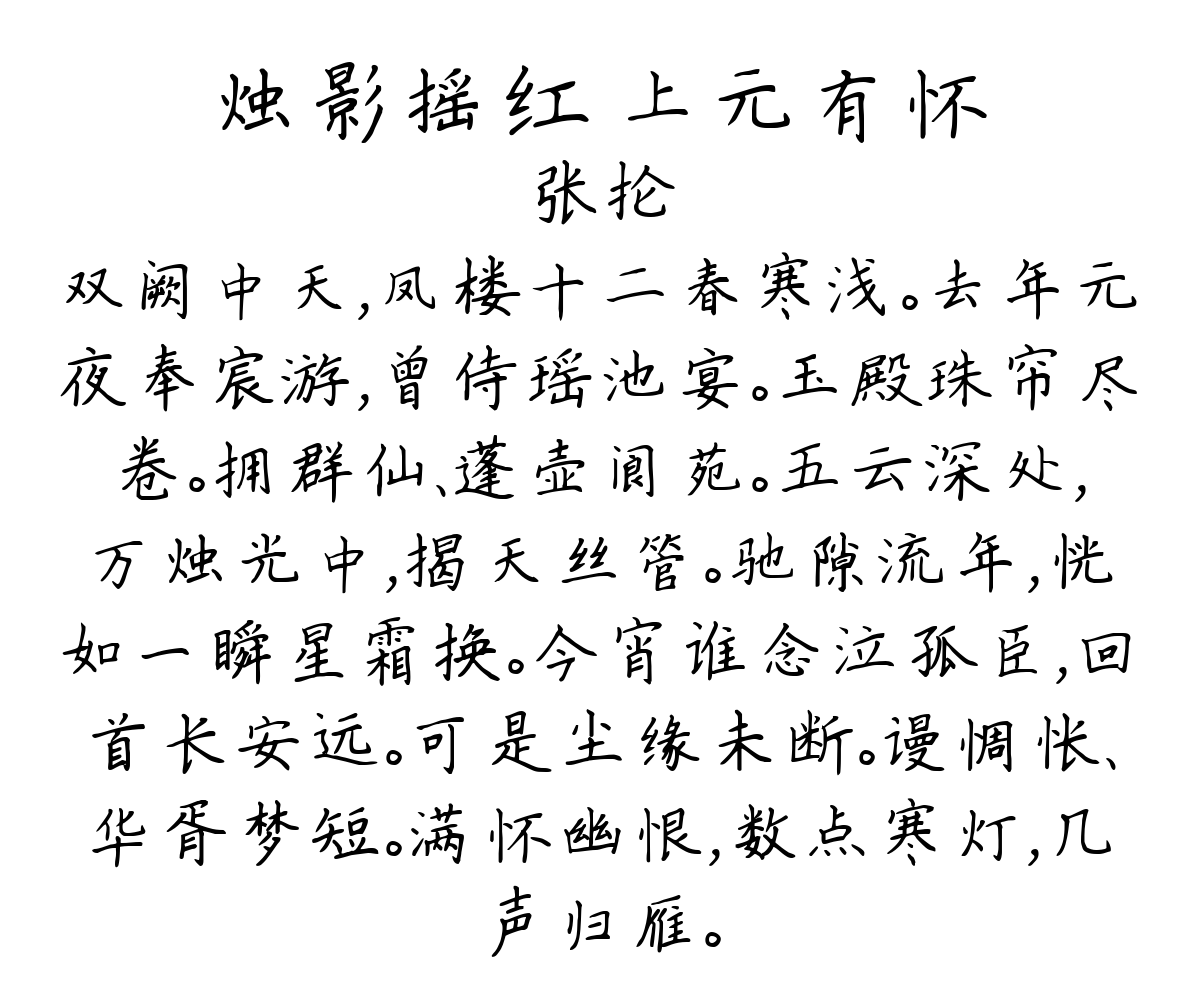 烛影摇红上元有怀
张抡
双阙中天,凤楼十二春寒浅。去年元
夜奉宸游,曾侍瑶池宴。玉殿珠帘尽
卷。拥群仙、蓬壶阆苑。五云深处,
万烛光中,揭天丝管。驰隙流年,恍
如一瞬星霜换。今宵谁念泣孤臣,回
首长安远。可是尘缘未断。谩惆怅、
华胥梦短。满怀幽恨,数点寒灯,几
声归雁。